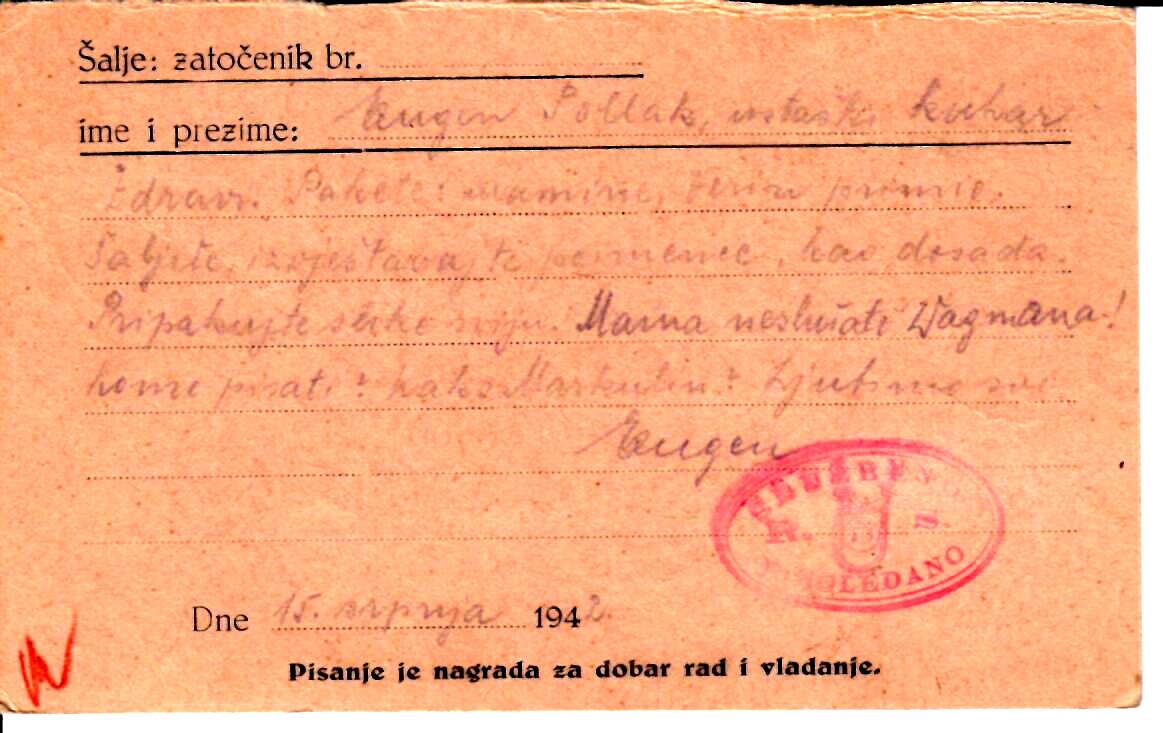 Šalje: zatočenik br.
ime i prezime: Eugen Pollak, ustaški kuhar
Zdrav. Pakete: mamine, Verin primio.
Šaljite, izvještavajte poimence, kao dosada.
Pripakujte sviju. Mama neslušati Wagmana!
kome pisati? kako Markulin? Ljubi
Eugen
SLUŽBENO
R. S.
PREGLEDANO
Dne 15. srpnja 1942.
Pisanje je nagrada za dobar rad i vladanje.